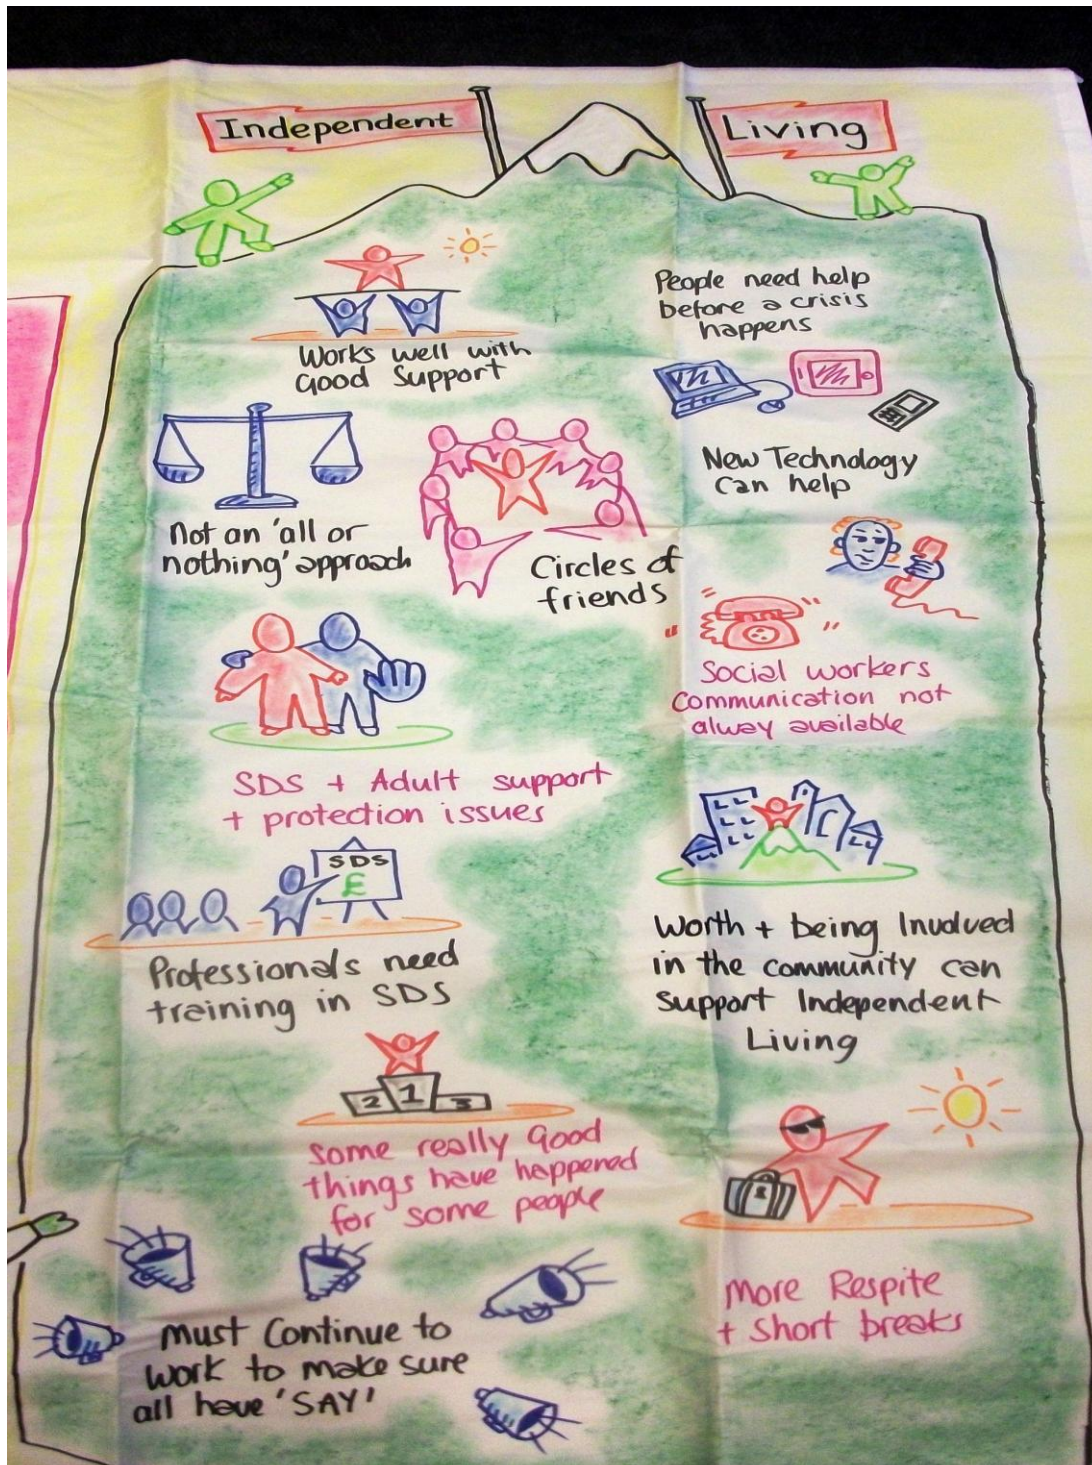 Independent
Living
Works well with
Good Support
People need help
before a crisis
happens
New Technology
can help
Not an 'all or
nothing' approach
Circles of
friends
Social workers
Communication not
alway available
SDS + Adult support
+ protection issues
SDS
£
Professionals need
training in SDS
Worth + being Involved
in the community can
support Independent
Living
2 1 3
Some really Good
things have happened
for some people
More Respite
+ Short breaks
Must Continue to
work to make sure
all have 'SAY'